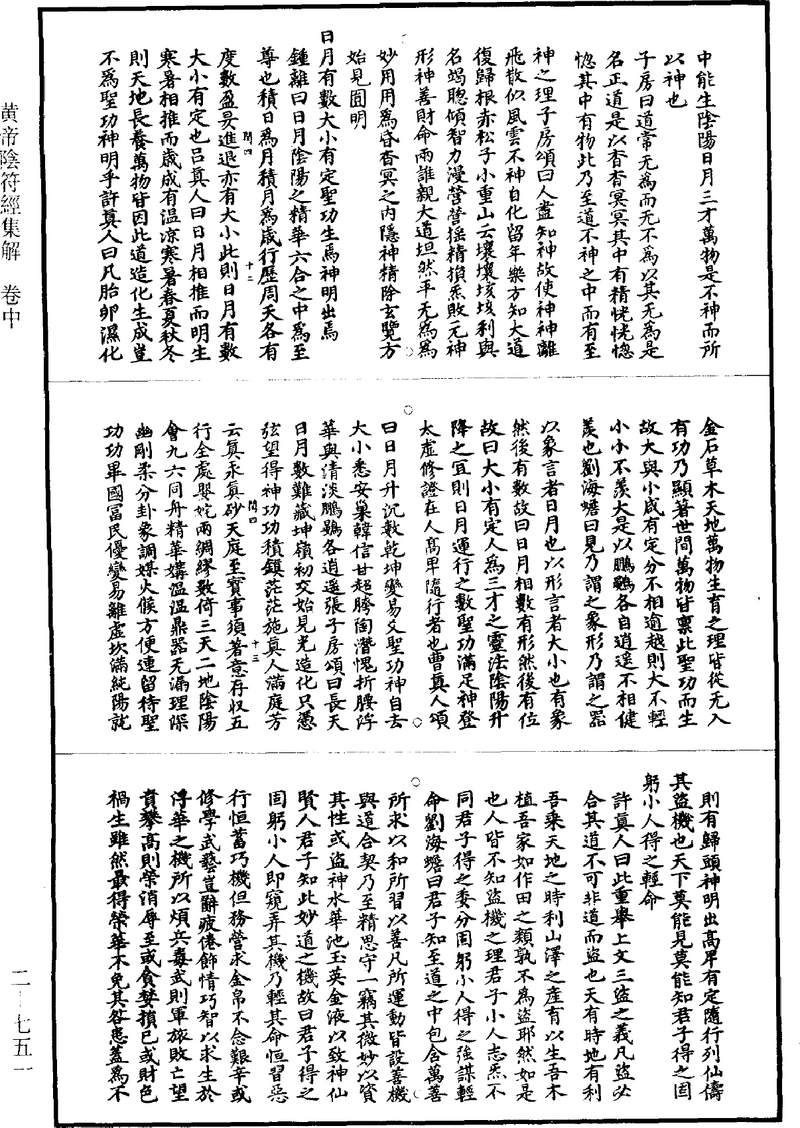 黄帝陰符經集解　卷中
中能生陰陽日月三才萬物是不神而所
以神也
子房曰道常无為而无不為以其无為是
名正道是以杳杳冥冥其中有精恍恍惚
惚其中有物此乃至道不神之中而有至
神之理子房頌曰人盡知神故使神神離
飛散似風雲不神自化留年樂方知大道
復歸根赤松子小重山云壤壤垓垓利與
名竭聰傾智力漫營營摇精損炁敗元神
形神善財命兩誰親大道坦然平无為為
妙用用為昏杳冥之內隱神精除玄覽方
始見圎明
日月有數大小有定聖功生焉神明出焉
鍾離曰日月陰陽之精華六合之中為至
尊也積日為月積月為歲行歷周天各有
閏四　十二
度數盈昃進退亦有大小此則日月有數
大小有定也吕真人曰日月相推而明生
寒暑相推而歲成有温凉寒暑春夏秋冬
則天地長養萬物皆因此道造化生成豈
不為聖功神明乎許真人曰凡胎卵濕化
金石草木天地萬物生育之理皆從无入
有功乃顯著世間萬物皆禀此聖功而生
故大與小咸有定分不相逾越則大不輕
小小不羨大是以鵬鷃各自逍遥不相健
羨也劉海蟾曰見乃謂之象形乃謂之器
以象言者日月也以形言者大小也有象
然後有數故曰日月相數有形然後有位
故曰大小有定人為三才之靈法陰陽升
降之宜則日月運行之數聖功滿足神登
太虚修證在人高卑隨行者也曹真人頌
曰日月升沉數乾坤變易爻聖功神自去
大小悉安巢韓信甘超胯陶潛愧折腰浮
華與清淡鵬鷃各逍遥張子房頌曰長天
日月數難藏坤嶺初交始見光造化只憑
弦望得神功功積鎮茫茫施真人滿庭芳
閏四　十三
云真汞真砂天庭至寶事須著意存收五
行全處嬰姹兩綢繆數倚三天二地陰陽
會九六同舟精華媾温温鼎器无漏理深
幽剛柔分卦象調媒火候方便連留待聖
功功畢國富民優變易離虚坎滿純陽就
則有歸頭神明出高卑有定隨行列仙儔
其盜機也天下莫能見莫能知君子得之固
躬小人得之輕命
許真人曰此重舉上文三盜之義凡盜必
合其道不可非道而盜也天有時地有利
吾乘天地之時利山澤之産有以生吾木
植吾家如作田之類孰不為盜耶然如是
也人皆不知盜機之理君子小人志炁不
同君子得之委分固躬小人得之強謀輕
命劉海蟾曰君子知至道之中包含萬善
所求以和所習以善凡所運動皆設善機
與道合契乃至精思守一竊其微妙以資
其性或盜神水華池玉英金液以致神仙
賢人君子知此妙道之機故曰君子得之
固躬小人即窺弄其機乃輕其命恒習惡
行恒蓄巧機但務營求金帛不念艱辛或
修學武藝豈辭疲倦飾情巧智以求生於
浮華之機所以煩兵毒武則軍旅敗亡望
貴攀高則榮消辱至或貪婪損已或財色
禍生雖然最得榮華不免其咎患蓋為不
二－七五一